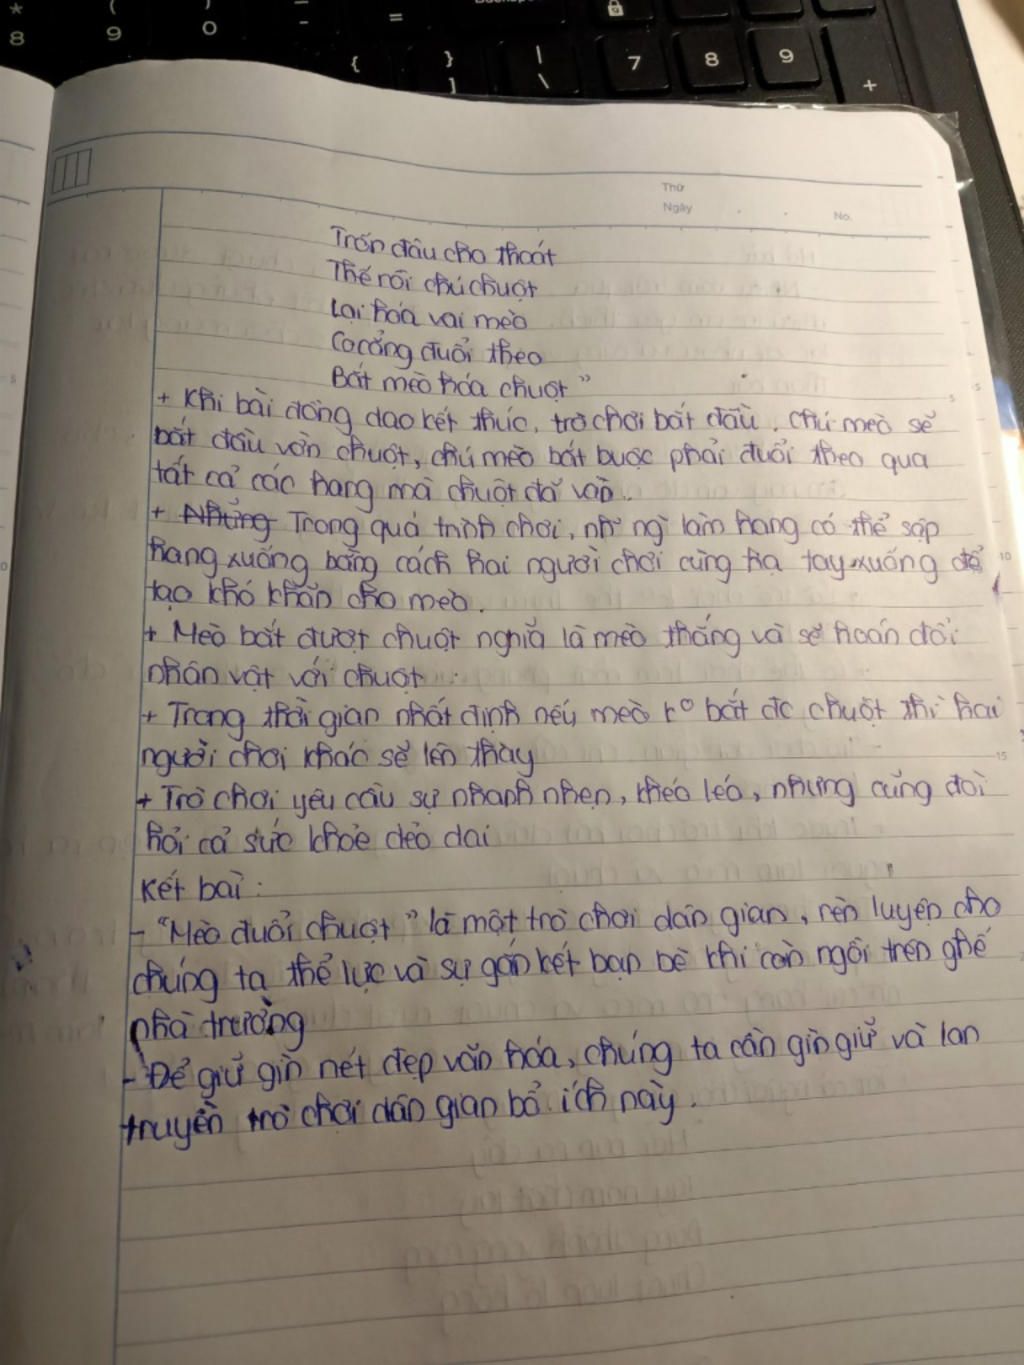 * ( ) _ = Backspace
8 9 0 -
{ } | 7 8 9
] \ +
Thứ
Ngày No.
Trốn đâu cho thoát
Thế rồi chú chuột
Lại hóa vai mèo
Co cẳng đuổi theo
Bắt mèo hóa chuột"
+ Khi bài đồng dao kết thúc, trò chơi bắt đầu, chú mèo sẽ
bắt đầu vờn chuột, chú mèo bắt buộc phải đuổi theo qua
tất cả các hang mà chuột đã vào.
+ Những Trong quá trình chơi, nh~ ng` làm hang có thể sập
hang xuống bằng cách hai người chơi cùng hạ tay xuống để
tạo khó khăn cho mèo.
+ Mèo bắt được chuột nghĩa là mèo thắng và sẽ hoán đổi
nhân vật với chuột
+ Trong thời gian nhất định nếu mèo k° bắt đc chuột thì hai
người chơi khác sẽ lên thay
+ Trò chơi yêu cầu sự nhanh nhẹn, khéo léo, nhưng cũng đòi
hỏi cả sức khỏe dẻo dai
Kết bài:
- "Mèo đuổi chuột" là một trò chơi dân gian, rèn luyện cho
chúng ta thể lực và sự gắn kết bạn bè khi còn ngồi trên ghế
nhà trường
- Để giữ gìn nét đẹp văn hóa, chúng ta cần gìn giữ và lan
truyền trò chơi dân gian bổ ích này.